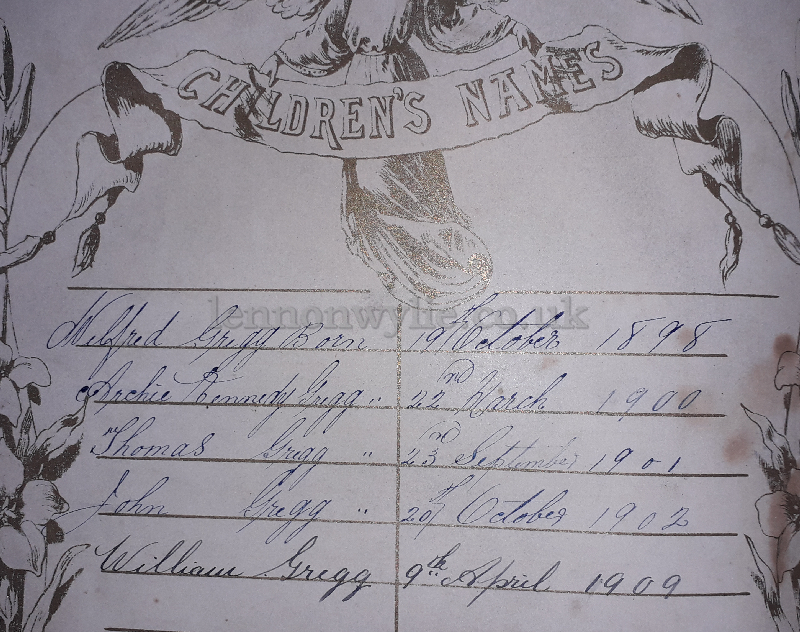 CHILDREN'S NAMES
lennonwylie.co.uk
Wilfred Gregg Born 19th October 1898
Archie Kennedy Gregg " 22nd March 1900
Thomas Gregg " 23rd September 1901
John Gregg " 20th October 1902
William Gregg 9th April 1909